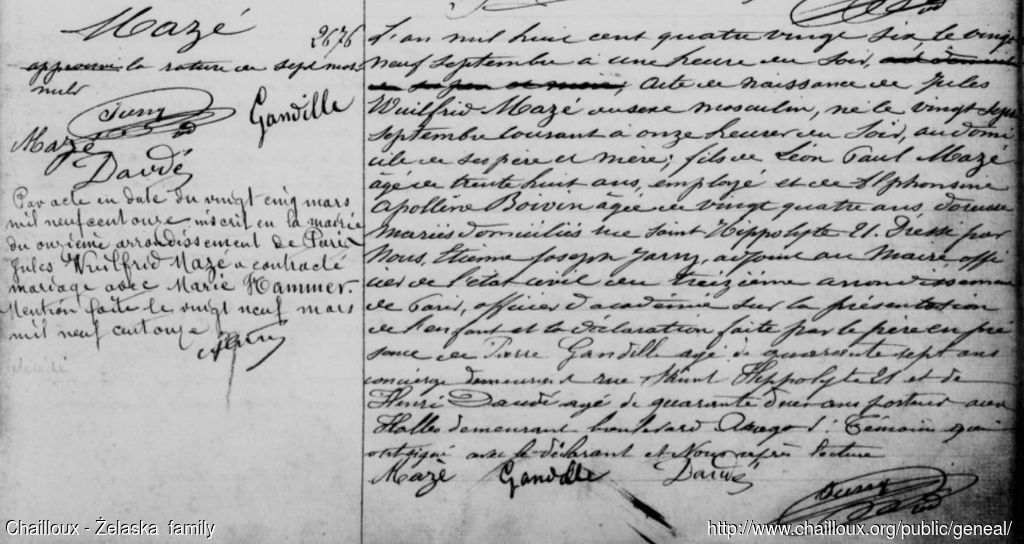 Mazé
2676
approuvé la rature de sept mots
nuls
Gandille
Mazé
Daudé
Par acte en date du vingt cinq mars
mil neuf cent onze inscrit en la mairie
du onzième arrondissement de Paris
Jules Wuilfrid Mazé a contracté
mariage avec Marie Hammer.
Mention faite le vingt neuf mars
mil neuf cent onze
L'an mil huit cent quatre vingt six, le vingt
neuf septembre à une heure du soir,
acte de naissance de Jules
Wuilfrid Mazé du sexe masculin, né le vingt sept
septembre courant à onze heures du soir, au domi
cile de ses père et mère; fils de Léon Paul Mazé
âgé de trente huit ans, employé et de Alphonsine
Apolline Boivin agée de vingt quatre ans, doreuse
mariés domiciliés rue Saint Hippolyte 21. Dressé par
Nous, Etienne Joseph Jarry, adjoint au Maire, offi
cier de l'état civil du treizième arrondissement
de Paris, officier d'académie sur la présentation
de l'enfant et la déclaration faite par le père en pré
sence de Pierre Gandille agé de quarante sept ans
concierge demeurant rue Saint Hippolyte 21 et de
Henri Daudé agé de quarante deux ans porteur aux
Halles demeurant boulevard Arago Témoins qui
ont signé avec le déclarant et Nous après lecture
Mazé Gandille Daudé
Chailloux - Żelaska family
http://www.chailloux.org/public/geneal/